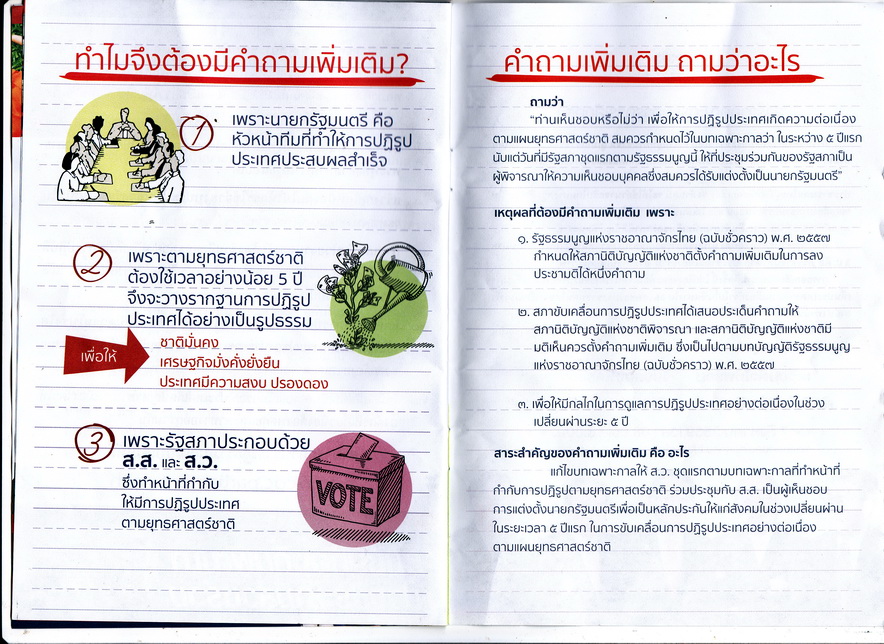 ทำไมจึงต้องมีคำถามเพิ่มเติม?
1
เพราะนายกรัฐมนตรี คือ
หัวหน้าทีมที่ทำให้การปฏิรูป
ประเทศประสบผลสำเร็จ
2
เพราะตามยุทธศาสตร์ชาติ
ต้องใช้เวลาอย่างน้อย 5 ปี
จึงจะวางรากฐานการปฏิรูป
ประเทศได้อย่างเป็นรูปธรรม
เพื่อให้
ชาติมั่นคง
เศรษฐกิจมั่งคั่งยั่งยืน
ประเทศมีความสงบ ปรองดอง
3
เพราะรัฐสภาประกอบด้วย
ส.ส. และ ส.ว.
ซึ่งทำหน้าที่กำกับ
ให้มีการปฏิรูปประเทศ
ตามยุทธศาสตร์ชาติ
VOTE
คำถามเพิ่มเติม ถามว่าอะไร
ถามว่า
"ท่านเห็นชอบหรือไม่ว่า เพื่อให้การปฏิรูปประเทศเกิดความต่อเนื่อง
ตามแผนยุทธศาสตร์ชาติ สมควรกำหนดไว้ในบทเฉพาะกาลว่า ในระหว่าง ๕ ปีแรก
นับแต่วันที่มีรัฐสภาชุดแรกตามรัฐธรรมนูญนี้ ให้ที่ประชุมร่วมกันของรัฐสภาเป็น
ผู้พิจารณาให้ความเห็นชอบบุคคลซึ่งสมควรได้รับแต่งตั้งเป็นนายกรัฐมนตรี"
เหตุผลที่ต้องมีคำถามเพิ่มเติม เพราะ
๑. รัฐธรรมนูญแห่งราชอาณาจักรไทย (ฉบับชั่วคราว) พ.ศ. ๒๕๕๗
กำหนดให้สภานิติบัญญัติแห่งชาติตั้งคำถามเพิ่มเติมในการลง
ประชามติได้หนึ่งคำถาม
๒. สภาขับเคลื่อนการปฏิรูปประเทศได้เสนอประเด็นคำถามให้
สภานิติบัญญัติแห่งชาติพิจารณา และสภานิติบัญญัติแห่งชาติมี
มติเห็นควรตั้งคำถามเพิ่มเติม ซึ่งเป็นไปตามบทบัญญัติรัฐธรรมนูญ
แห่งราชอาณาจักรไทย (ฉบับชั่วคราว) พ.ศ. ๒๕๕๗
๓. เพื่อให้มีกลไกในการดูแลการปฏิรูปประเทศอย่างต่อเนื่องในช่วง
เปลี่ยนผ่านระยะ ๕ ปี
สาระสำคัญของคำถามเพิ่มเติม คือ อะไร
แก้ไขบทเฉพาะกาลให้ ส.ว. ชุดแรกตามบทเฉพาะกาลที่ทำหน้าที่
กำกับการปฏิรูปตามยุทธศาสตร์ชาติ ร่วมประชุมกับ ส.ส. เป็นผู้เห็นชอบ
การแต่งตั้งนายกรัฐมนตรีเพื่อเป็นหลักประกันให้แก่สังคมในช่วงเปลี่ยนผ่าน
ในระยะเวลา ๕ ปีแรก ในการขับเคลื่อนการปฏิรูปประเทศอย่างต่อเนื่อง
ตามแผนยุทธศาสตร์ชาติ